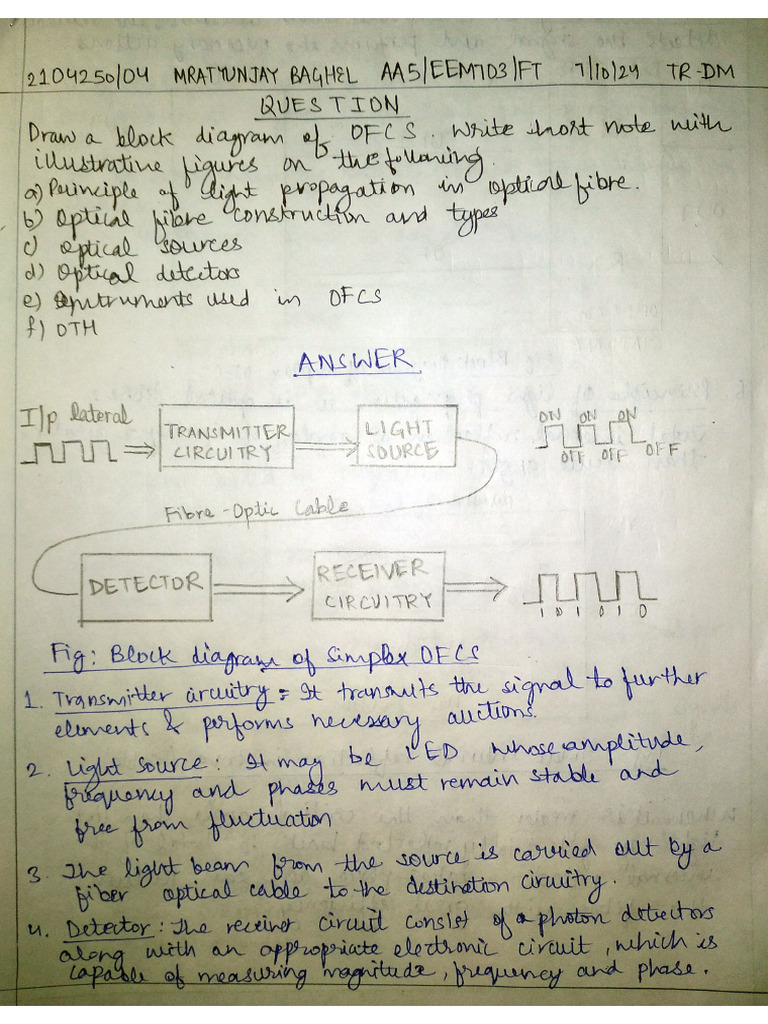 2104250104 MRATYUNJAY BAGHEL AA5/EEM703/FT 7/10/24 TR-DM
QUESTION
Draw a block diagram of OFCS. Write short note with
illustrative figures on the following.
a) Principle of light propagation in optical fibre.
b) Optical fibre construction and types
c) Optical sources
d) Optical detectors
e) Instruments used in OFCS
f) OTH
ANSWER
I/p lateral
TRANSMITTER CIRCUITRY
LIGHT SOURCE
ON ON ON
OFF OFF OFF
Fibre-Optic Cable
DETECTOR
RECEIVER CIRCUITRY
1 0 1 0 1 0
Fig: Block diagram of Simplex OFCS
1. Transmitter circuitry = It transmits the signal to further
elements & performs necessary auctions.
2. Light Source: It may be LED whose amplitude,
frequency and phases must remain stable and
free from fluctuation
3. The light beam from the source is carried out by a
fiber optical cable to the destination circuitry.
4. Detector: The circuit consist of a photon detectors
along with an appropriate electronic circuit, which is
capable of measuring magnitude, frequency and phase.